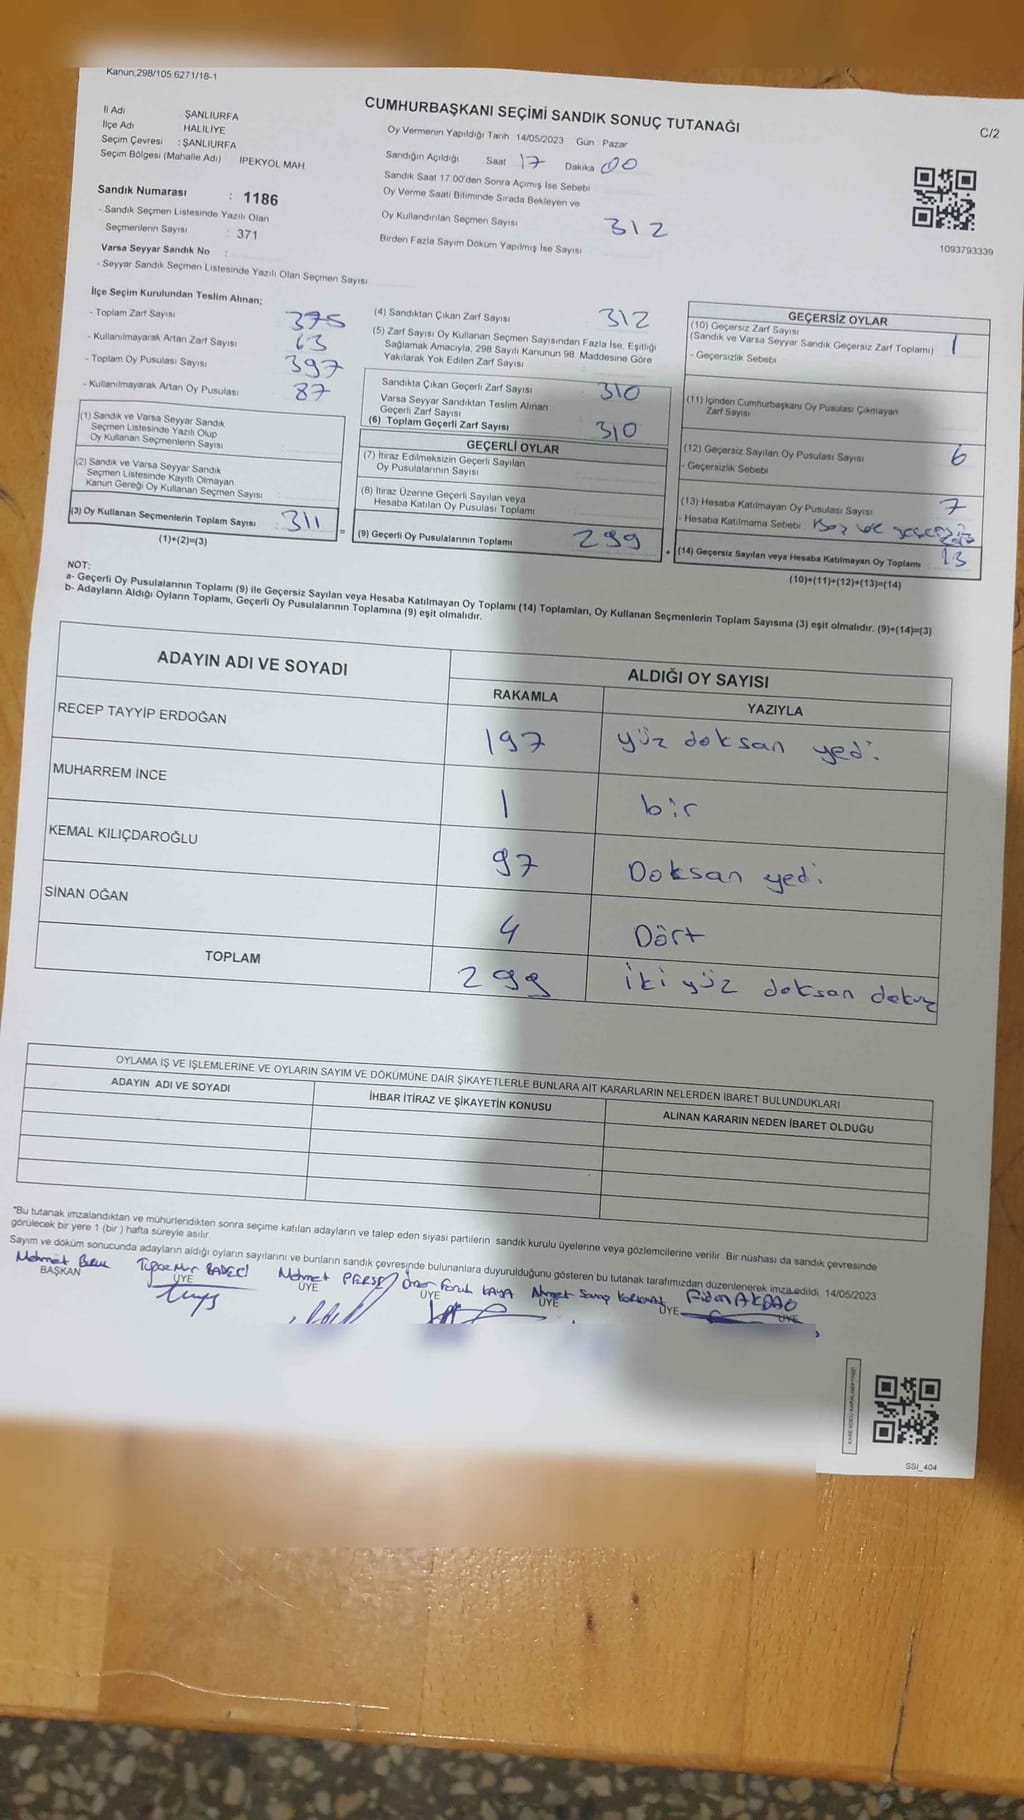 Kanun:298/105 6271/18-1
CUMHURBAŞKANI SEÇİMİ SANDIK SONUÇ TUTANAĞI
C/2
İl Adı ŞANLIURFA
İlçe Adı HALİLİYE
Seçim Çevresi : ŞANLIURFA
Seçim Bölgesi (Mahalle Adı) İPEKYOL MAH
Oy Vermenin Yapıldığı Tarih 14/05/2023 Gün Pazar
Sandığın Açıldığı Saat 17 Dakika 00
Sandık Saat 17:00'den Sonra Açımış İse Sebebi
Oy Verme Saati Bitiminde Sırada Bekleyen ve
Oy Kullandırılan Seçmen Sayısı 312
Birden Fazla Sayım Döküm Yapılmış İse Sayısı
1093793339
Sandık Numarası : 1186
- Sandık Seçmen Listesinde Yazılı Olan
Seçmenlerin Sayısı : 371
Varsa Seyyar Sandık No :
- Seyyar Sandık Seçmen Listesinde Yazılı Olan Seçmen Sayısı
İlçe Seçim Kurulundan Teslim Alınan;
- Toplam Zarf Sayısı 375
- Kullanılmayarak Artan Zarf Sayısı 63
- Toplam Oy Pusulası Sayısı 397
- Kullanılmayarak Artan Oy Pusulası 87
(1) Sandık ve Varsa Seyyar Sandık
Seçmen Listesinde Yazılı Olup
Oy Kullanan Seçmenlerin Sayısı
(2) Sandık ve Varsa Seyyar Sandık
Seçmen Listesinde Kayıtlı Olmayan
Kanun Gereği Oy Kullanan Seçmen Sayısı
(3) Oy Kullanan Seçmenlerin Toplam Sayısı 311
(1)+(2)=(3)
=
(4) Sandıktan Çıkan Zarf Sayısı 312
(5) Zarf Sayısı Oy Kullanan Seçmen Sayısından Fazla İse, Eşitliği
Sağlamak Amacıyla, 298 Sayılı Kanunun 98. Maddesine Göre
Yakılarak Yok Edilen Zarf Sayısı
Sandıkta Çıkan Geçerli Zarf Sayısı 310
Varsa Seyyar Sandıktan Teslim Alınan
Geçerli Zarf Sayısı
(6) Toplam Geçerli Zarf Sayısı 310
GEÇERLİ OYLAR
(7) İtiraz Edilmeksizin Geçerli Sayılan
Oy Pusulalarının Sayısı
(8) İtiraz Üzerine Geçerli Sayılan veya
Hesaba Katılan Oy Pusulası Toplamı
(9) Geçerli Oy Pusulalarının Toplamı 299
+
GEÇERSİZ OYLAR
(10) Geçersiz Zarf Sayısı
(Sandık ve Varsa Seyyar Sandık Geçersiz Zarf Toplamı) 1
- Geçersizlik Sebebi
(11) İçinden Cumhurbaşkanı Oy Pusulası Çıkmayan
Zarf Sayısı
(12) Geçersiz Sayılan Oy Pusulası Sayısı 6
- Geçersizlik Sebebi
(13) Hesaba Katılmayan Oy Pusulası Sayısı 7
- Hesaba Katılmama Sebebi Boş ve geçersiz
(14) Geçersiz Sayılan veya Hesaba Katılmayan Oy Toplamı 13
(10)+(11)+(12)+(13)=(14)
NOT:
a- Geçerli Oy Pusulalarının Toplamı (9) ile Geçersiz Sayılan veya Hesaba Katılmayan Oy Toplamı (14) Toplamları, Oy Kullanan Seçmenlerin Toplam Sayısına (3) eşit olmalıdır. (9)+(14)=(3)
b- Adayların Aldığı Oyların Toplamı, Geçerli Oy Pusulalarının Toplamına (9) eşit olmalıdır.
ADAYIN ADI VE SOYADI
ALDIĞI OY SAYISI
RAKAMLA YAZIYLA
RECEP TAYYİP ERDOĞAN 197 yüz doksan yedi.
MUHARREM İNCE 1 bir
KEMAL KILIÇDAROĞLU 97 Doksan yedi.
SİNAN OĞAN 4 Dört
TOPLAM 299 iki yüz doksan dokuz
OYLAMA İŞ VE İŞLEMLERİNE VE OYLARIN SAYIM VE DÖKÜMÜNE DAİR ŞİKAYETLERLE BUNLARA AİT KARARLARIN NELERDEN İBARET BULUNDUKLARI
ADAYIN ADI VE SOYADI İHBAR İTİRAZ VE ŞİKAYETİN KONUSU ALINAN KARARIN NEDEN İBARET OLDUĞU
*Bu tutanak imzalandıktan ve mühürlendikten sonra seçime katılan adayların ve talep eden siyasi partilerin sandık kurulu üyelerine veya gözlemcilerine verilir. Bir nüshası da sandık çevresinde
görülecek bir yere 1 (bir ) hafta süreyle asılır.
Sayım ve döküm sonucunda adayların aldığı oyların sayılarını ve bunların sandık çevresinde bulunanlara duyurulduğunu gösteren bu tutanak tarafımızdan düzenlenerek imza edildi. 14/05/2023
Mehmet
BAŞKAN
ÜYE
Mehmet
ÜYE
Ömer Faruk KAYA
ÜYE
Ahmet Savaş
ÜYE
AKDAĞ
ÜYE
SSI_404